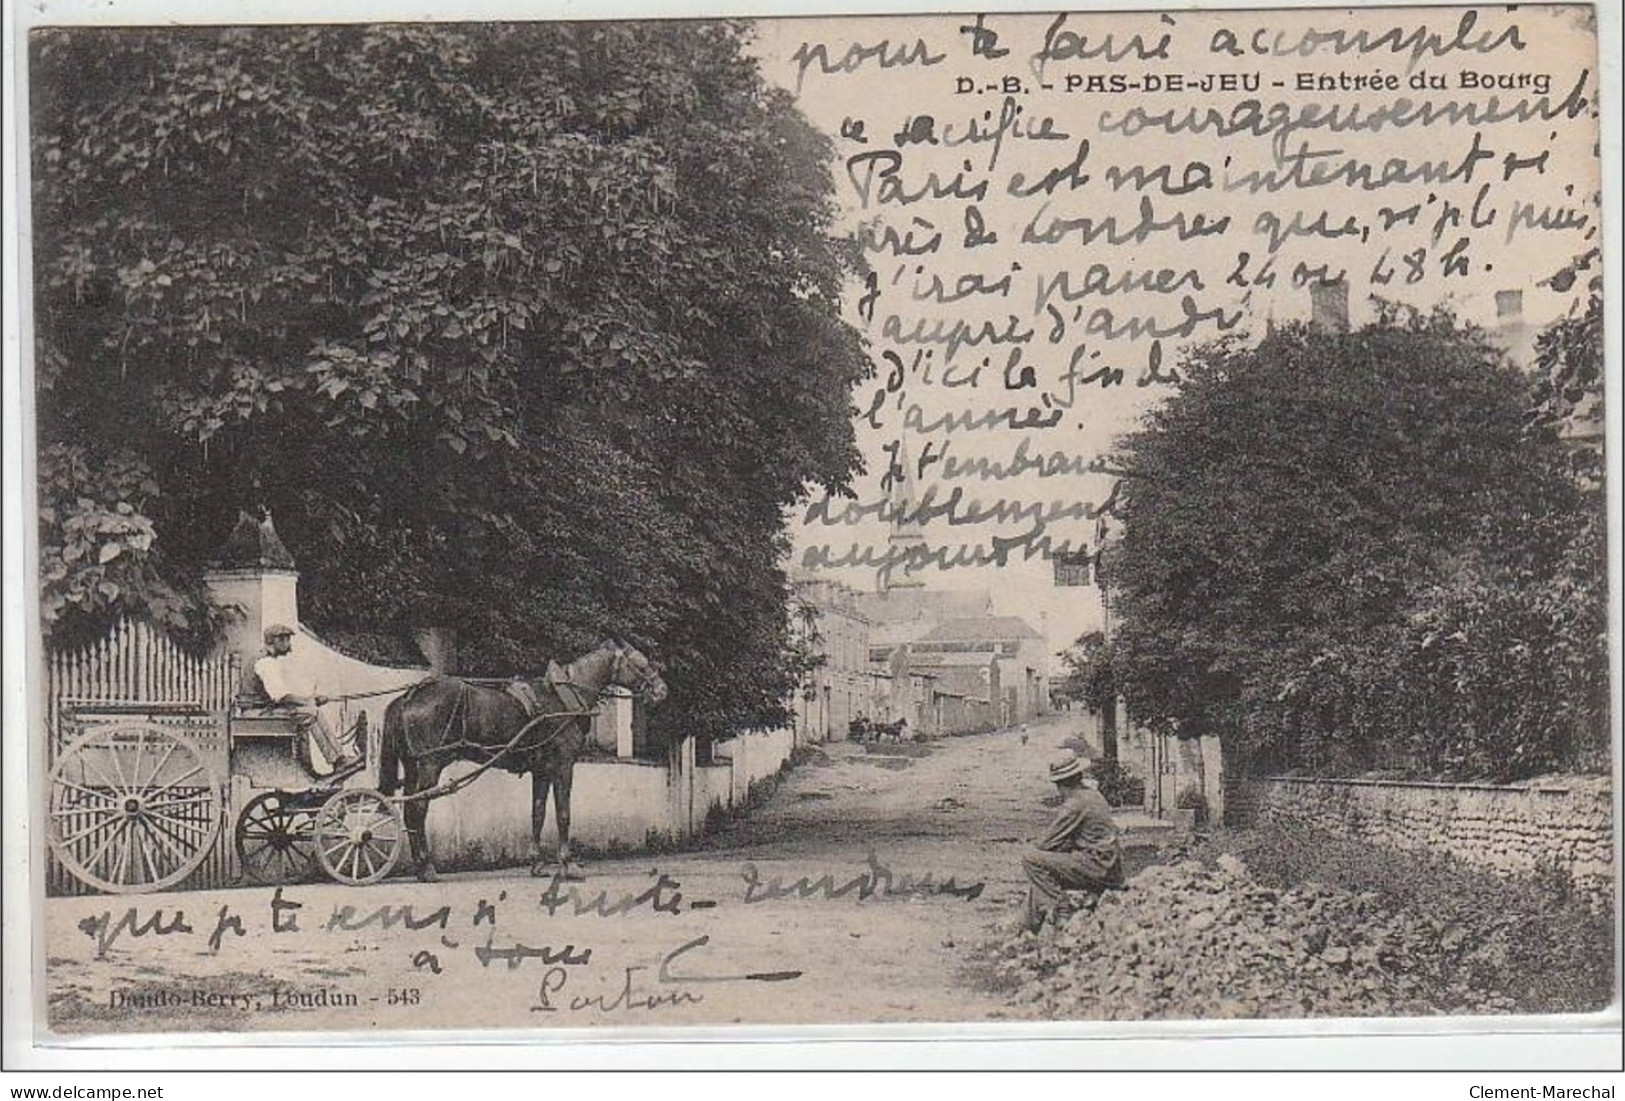 pour te faire accomplir
D.-B. - PAS-DE-JEU - Entrée du Bourg
ce sacrifice courageusement
Paris est maintenant si
près de Londres que, si je le puis,
j'irai passer 24 ou 48 h.
auprès d'André
d'ici la fin de
l'année.
Je t'embrasse
doublement
aujourd'hui
que je te sens si triste - Tendresses
à tous
Poitou
Dando-Berry, Loudun - 543
delcampe.net
Clement-Marechal